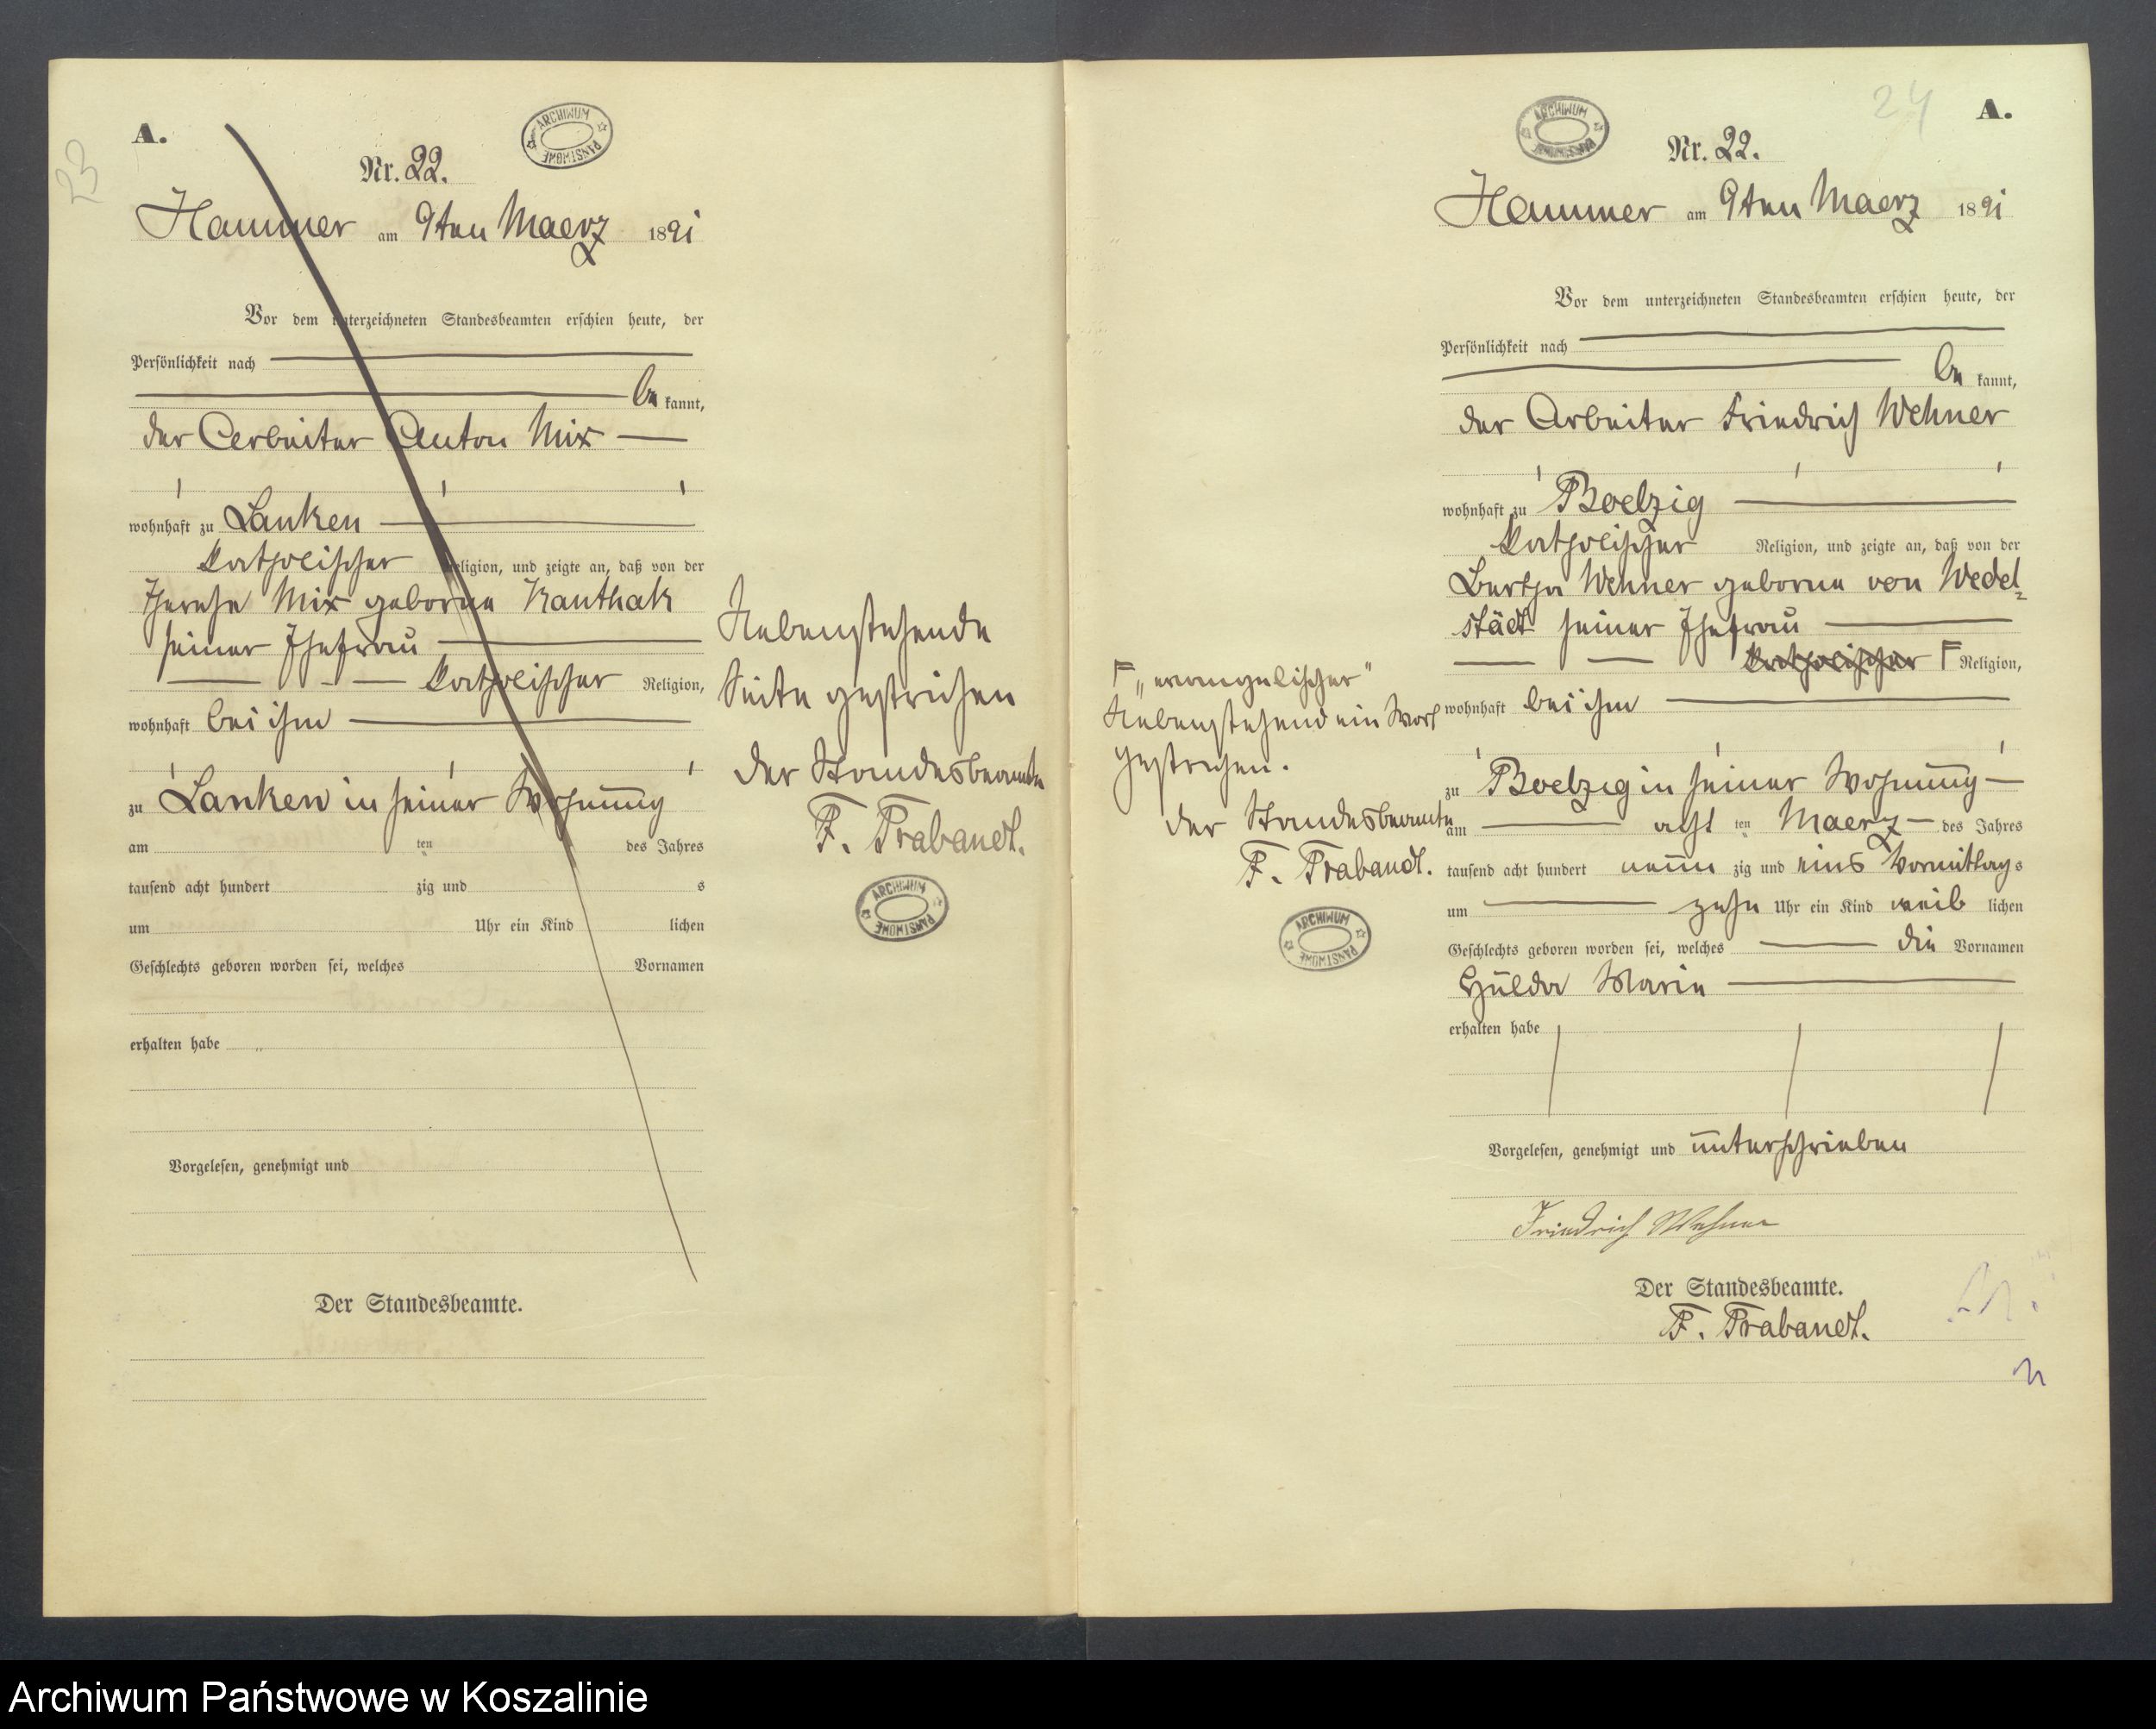 23
A.
ARCHIWUM PAŃSTWOWE
Nr. 22.
Hammer am 9ten Maerz 1891
Vor dem unterzeichneten Standesbeamten erschien heute, der
Persönlichkeit nach
be kannt,
der Arbeiter Anton Mix
wohnhaft zu Lanken
katholischer Religion, und zeigte an, daß von der
Therese Mix geborne Kanthak
seiner Ehefrau
katholischer Religion,
wohnhaft bei ihm
zu Lanken in seiner Wohnung
am ten des Jahres
tausend acht hundert zig und s
um Uhr ein Kind lichen
Geschlechts geboren worden sei, welches Vornamen
erhalten habe
Vorgelesen, genehmigt und
Der Standesbeamte.
Nebenstehende
Seite gestrichen
Der Standesbeamte
F. Trabandt.
ARCHIWUM PAŃSTWOWE
24
A.
ARCHIWUM PAŃSTWOWE
Nr. 22.
Hammer am 9ten Maerz 1891
Vor dem unterzeichneten Standesbeamten erschien heute, der
Persönlichkeit nach
be kannt,
der Arbeiter Friedrich Wehner
wohnhaft zu Boelzig
katholischer Religion, und zeigte an, daß von der
Bertha Wehner geborne von Wedel=
städt seiner Ehefrau
katholischer F Religion,
wohnhaft bei ihm
zu Boelzig in seiner Wohnung
am acht ten Maerz des Jahres
tausend acht hundert neun zig und eins Vormittags
um zehn Uhr ein Kind weib lichen
Geschlechts geboren worden sei, welches die Vornamen
Hulda Marie
erhalten habe
Vorgelesen, genehmigt und unterschrieben
Friedrich Wehner
Der Standesbeamte.
F. Trabandt.
F „evangelischer"
Nebenstehend ein Wort
gestrichen.
Der Standesbeamte
F. Trabandt.
ARCHIWUM PAŃSTWOWE
Archiwum Państwowe w Koszalinie